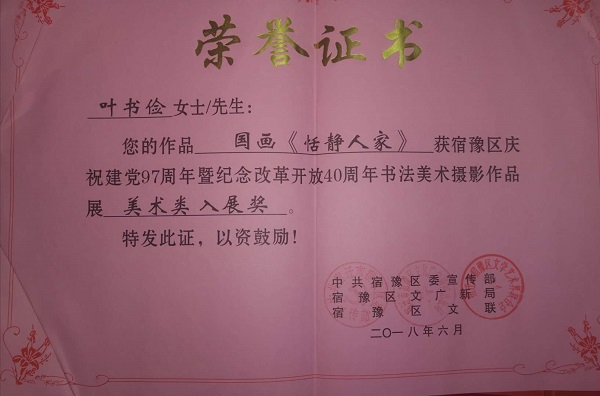 荣誉证书
叶书俭女士/先生：
您的作品 国画《恬静人家》 获宿豫区庆
祝建党97周年暨纪念改革开放40周年书法美术摄影作品
展 美术类入展奖 。
特发此证，以资鼓励！
中共宿豫区委宣传部
宿豫区文广新局
宿豫区文联
二〇一八年六月